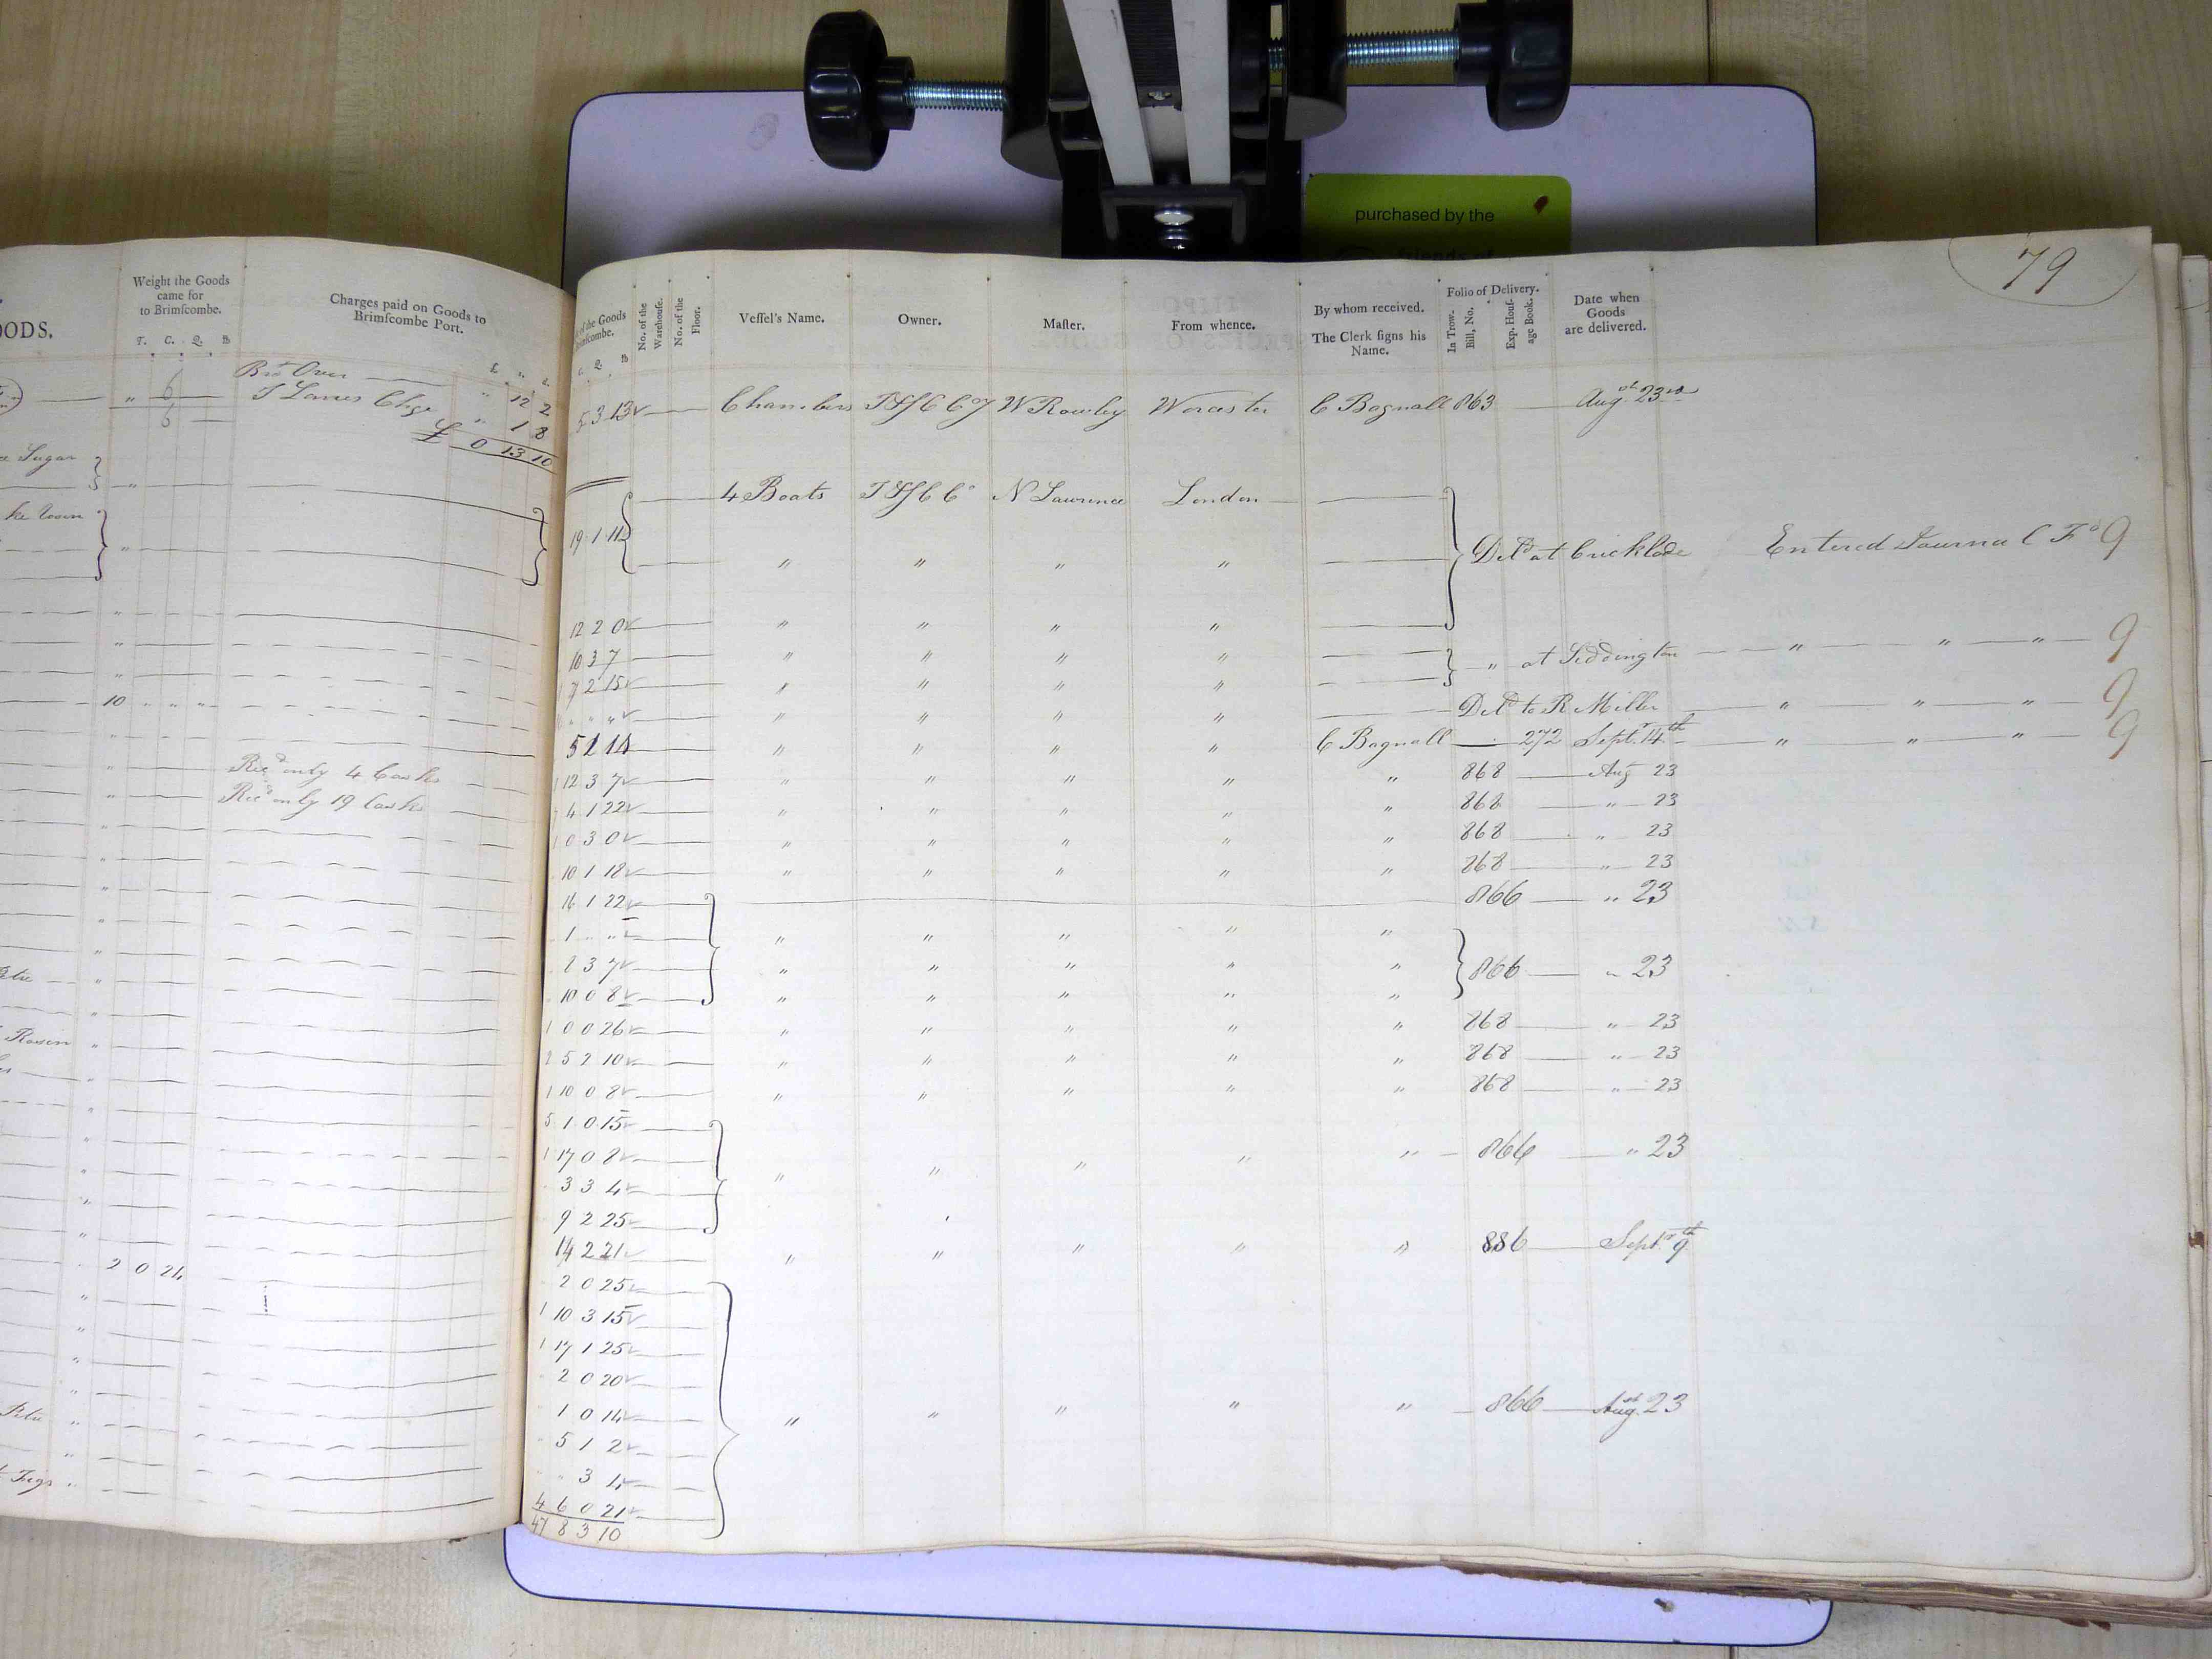 purchased by the
79
OODS.
Weight the Goods
came for
to Brimſcombe.
T. C. Q. lb
Charges paid on Goods to
Brimſcombe Port.
Brot Over
" 6 " 12 2
6 " 1 8
£ 0 13 10
Sugar
10
Recd only 4 Casks
Recd only 19 Casks
Rosin
2 0 24
Figs
of the Goods
No. of the
Warehouſe.
No. of the
Floor.
Veſſel's Name.
Owner.
Maſter.
From whence.
By whom received.
The Clerk ſigns his
Name.
Folio of Delivery.
In Trow-
Bill, No.
Exp. Houſ-
age Book.
Date when
Goods
are delivered.
5 3 13 Chambers W Rowley Worcester C Bagnall 863 Augst 23rd
19 1 11 4 Boats N Lawrence London
" " " " Deld at Cricklade Entered Journal C Fo 9
12 2 0 " " " "
10 3 7 " " " " " at Siddington " " " 9
7 2 15 " " " "
" " " " Deld to R Miller " " " 9
5 1 14 " " " " C Bagnall 272 Septr 14th " " " 9
12 3 7 " " " " " 868 Aug 23
4 1 22 " " " " " 868 " 23
0 3 0 " " " " " 868 " 23
10 1 18 " " " " " 868 " 23
16 1 22 866 " 23
1 " " " " " " "
2 3 7 " " " " " 866 " 23
10 0 8 " " " " "
1 0 0 26 " " " " " 868 " 23
2 5 2 10 " " " " " 868 " 23
1 10 0 8 " " " " " 868 " 23
5 1 0 15
1 17 0 8 " " " " " 866 " 23
3 3 4
9 2 25
14 2 21 " " " " " 886 Septr 9th
2 0 25
1 10 3 15
1 17 1 25
2 0 20
1 0 14 " " " " " 866 Augst 23
5 1 2
3 4
4 6 0 21
47 8 3 10